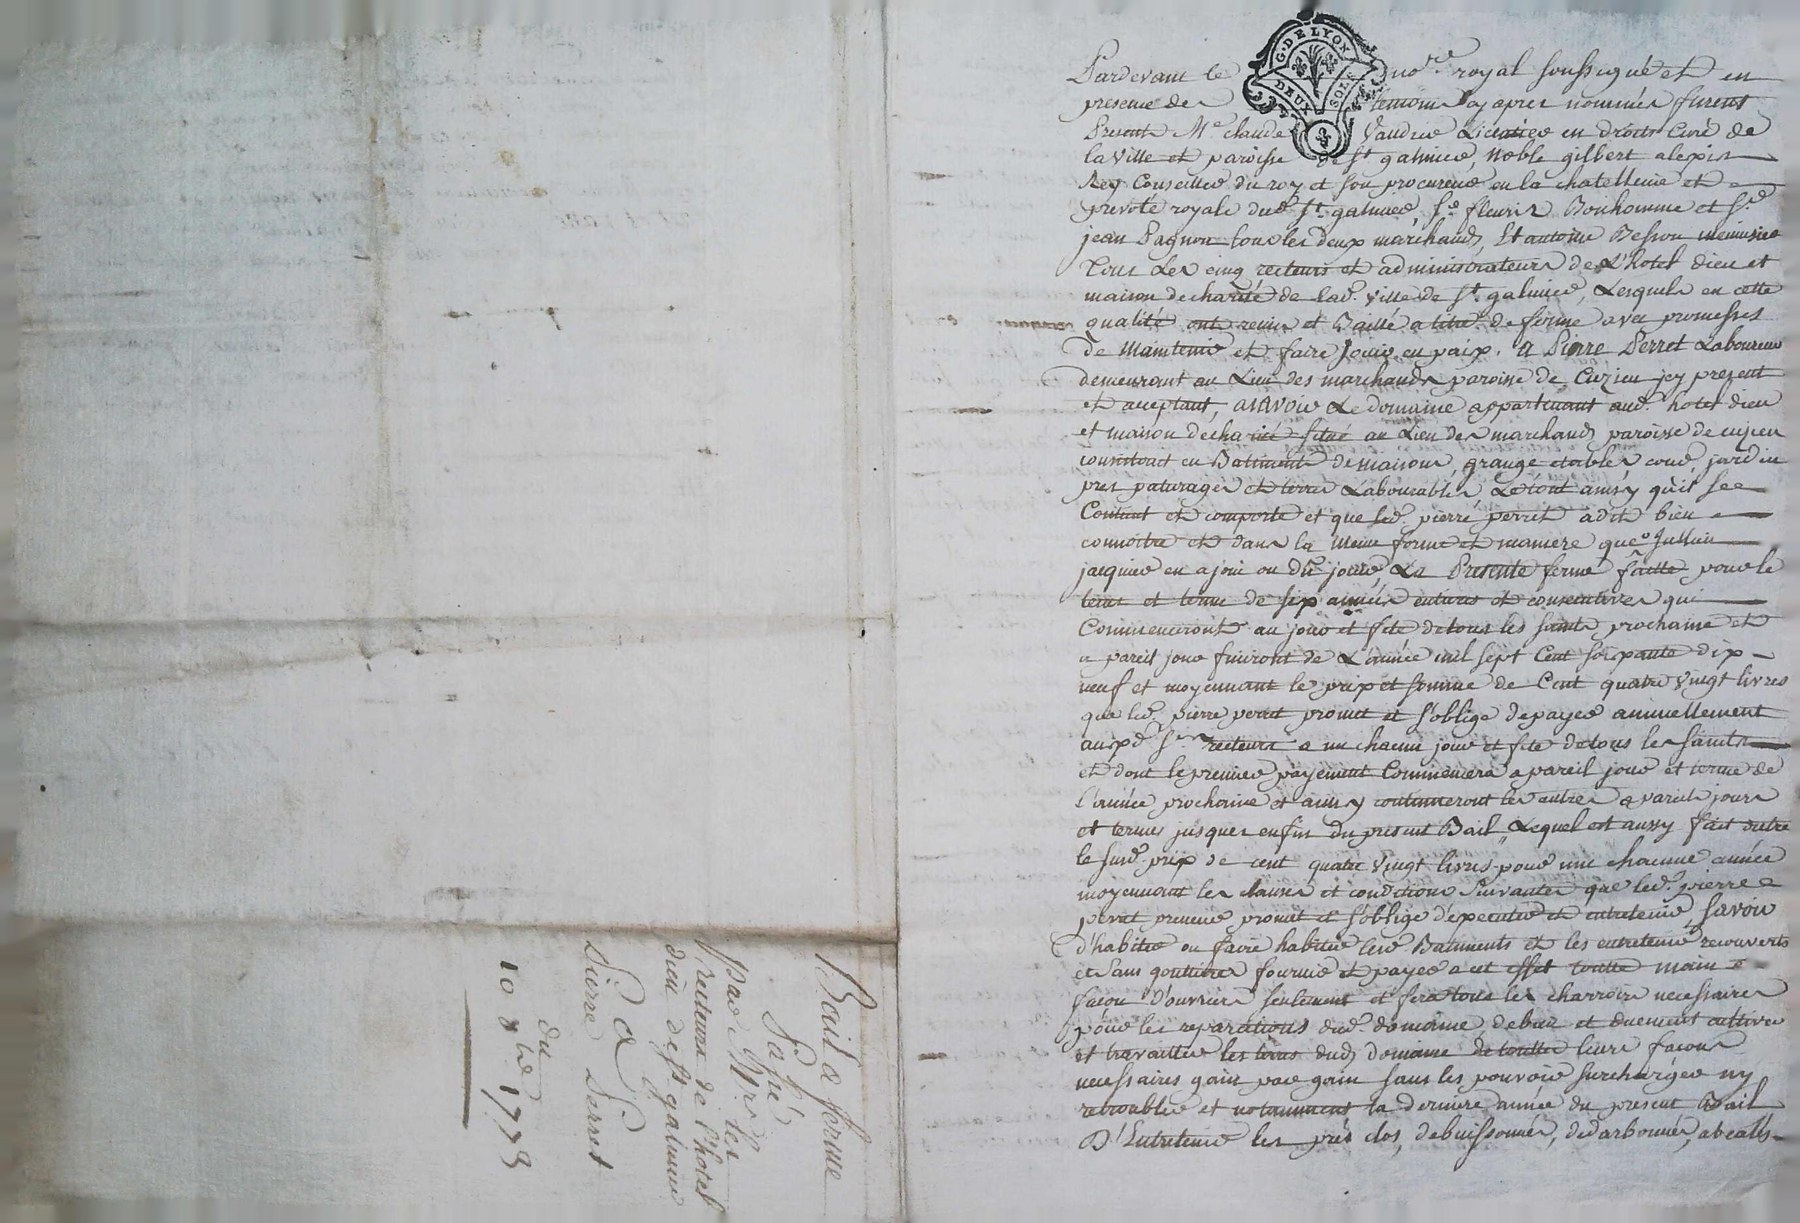 G. DE LYON
DEUX SOLS
Pardevant le no.re royal soussigné et en
presence des temoins cy apres nommés furent
Presents Me claude Vaudrer Licentier en droits Curé de
la ville et paroisse de St galmier, Noble gilbert alexis
Rey Conseiller du roy et son procureur en la chatellenie et
prevoté royale dud. St galmier, Sr fleuris Bonhomme et Sr
jean Pagnon tous les deux marchands, Et antoine Besson menuisier
Tous Les cinq recteurs et administrateurs de L'hotel dieu et
maison de charité de lad. ville de St galmier, Lesquels en cette
qualité ont remis et Baillé a titre de ferme avec promesses
de Maintenir et faire Jouir en paix, a Pierre Perret Laboureur
demeurant au Lieu des marchands paroisse de Cuzieu jcy present
et acceptant, asavoir Le domaine appartenant aud. hotel dieu
et maison de charité situé au Lieu des marchands paroisse de cuzieu
consistant en Batiments de maisons, grange etables cour, jardin
pres paturages et terres Labourables, Le tout ainsy qu'il se
Contient et comporte et que led. pierre perret a dit bien
connoitre et dans la meme forme et maniere que Jullien
jacquier en a joui ou du jouir, La Presente ferme faitte pour le
tems et terme de six années entieres et consecutives qui
Commenceront au jour et fete de tous les saints prochaine et
a pareil jour finiront de L'année mil sept Cent soixante dix
neuf et moyennant le prix et somme de Cent quatre vingt livres
que led. pierre perret promet et s'oblige de payer annuellement
auxd. Srs recteurs a un chacun jour et fete de tous les saints
et dont le premier payement Commencera a pareil jour et terme de
l'année prochaine et ainsy continueront les autres a pareils jours
et termes jusques en fin du present Bail, Lequel est aussy fait outre
le susd. prix de cent quatre vingt livres pour une chacune année
moyennant les clauses et conditions suivantes que led. pierre
perret preneur promet et s'oblige d'executer et entretenir, savoir
d'habiter ou faire habiter les Batiments et les entretenir recouverts
et sans gouttieres fournir et payer a cet effet toutte main
façon d'ouvriers seulement et fera tous les charrois necessaires
pour les reparations dud. domaine de bien et duement cultiver
et travailler les terres dud domaine de touttes leurs façons
necessaires gain par gain sans les pouvoir surcharger ny
retroubler et notamment la derniere année du present Bail
D'Entretenir les prés clos, debuissonnés, dedarbonnés, abealés
Bail a ferme
Passé
par Mrs les
recteurs de l'hotel
dieu de St galmier
a
Pierre Perret
du
10 8bre 1773